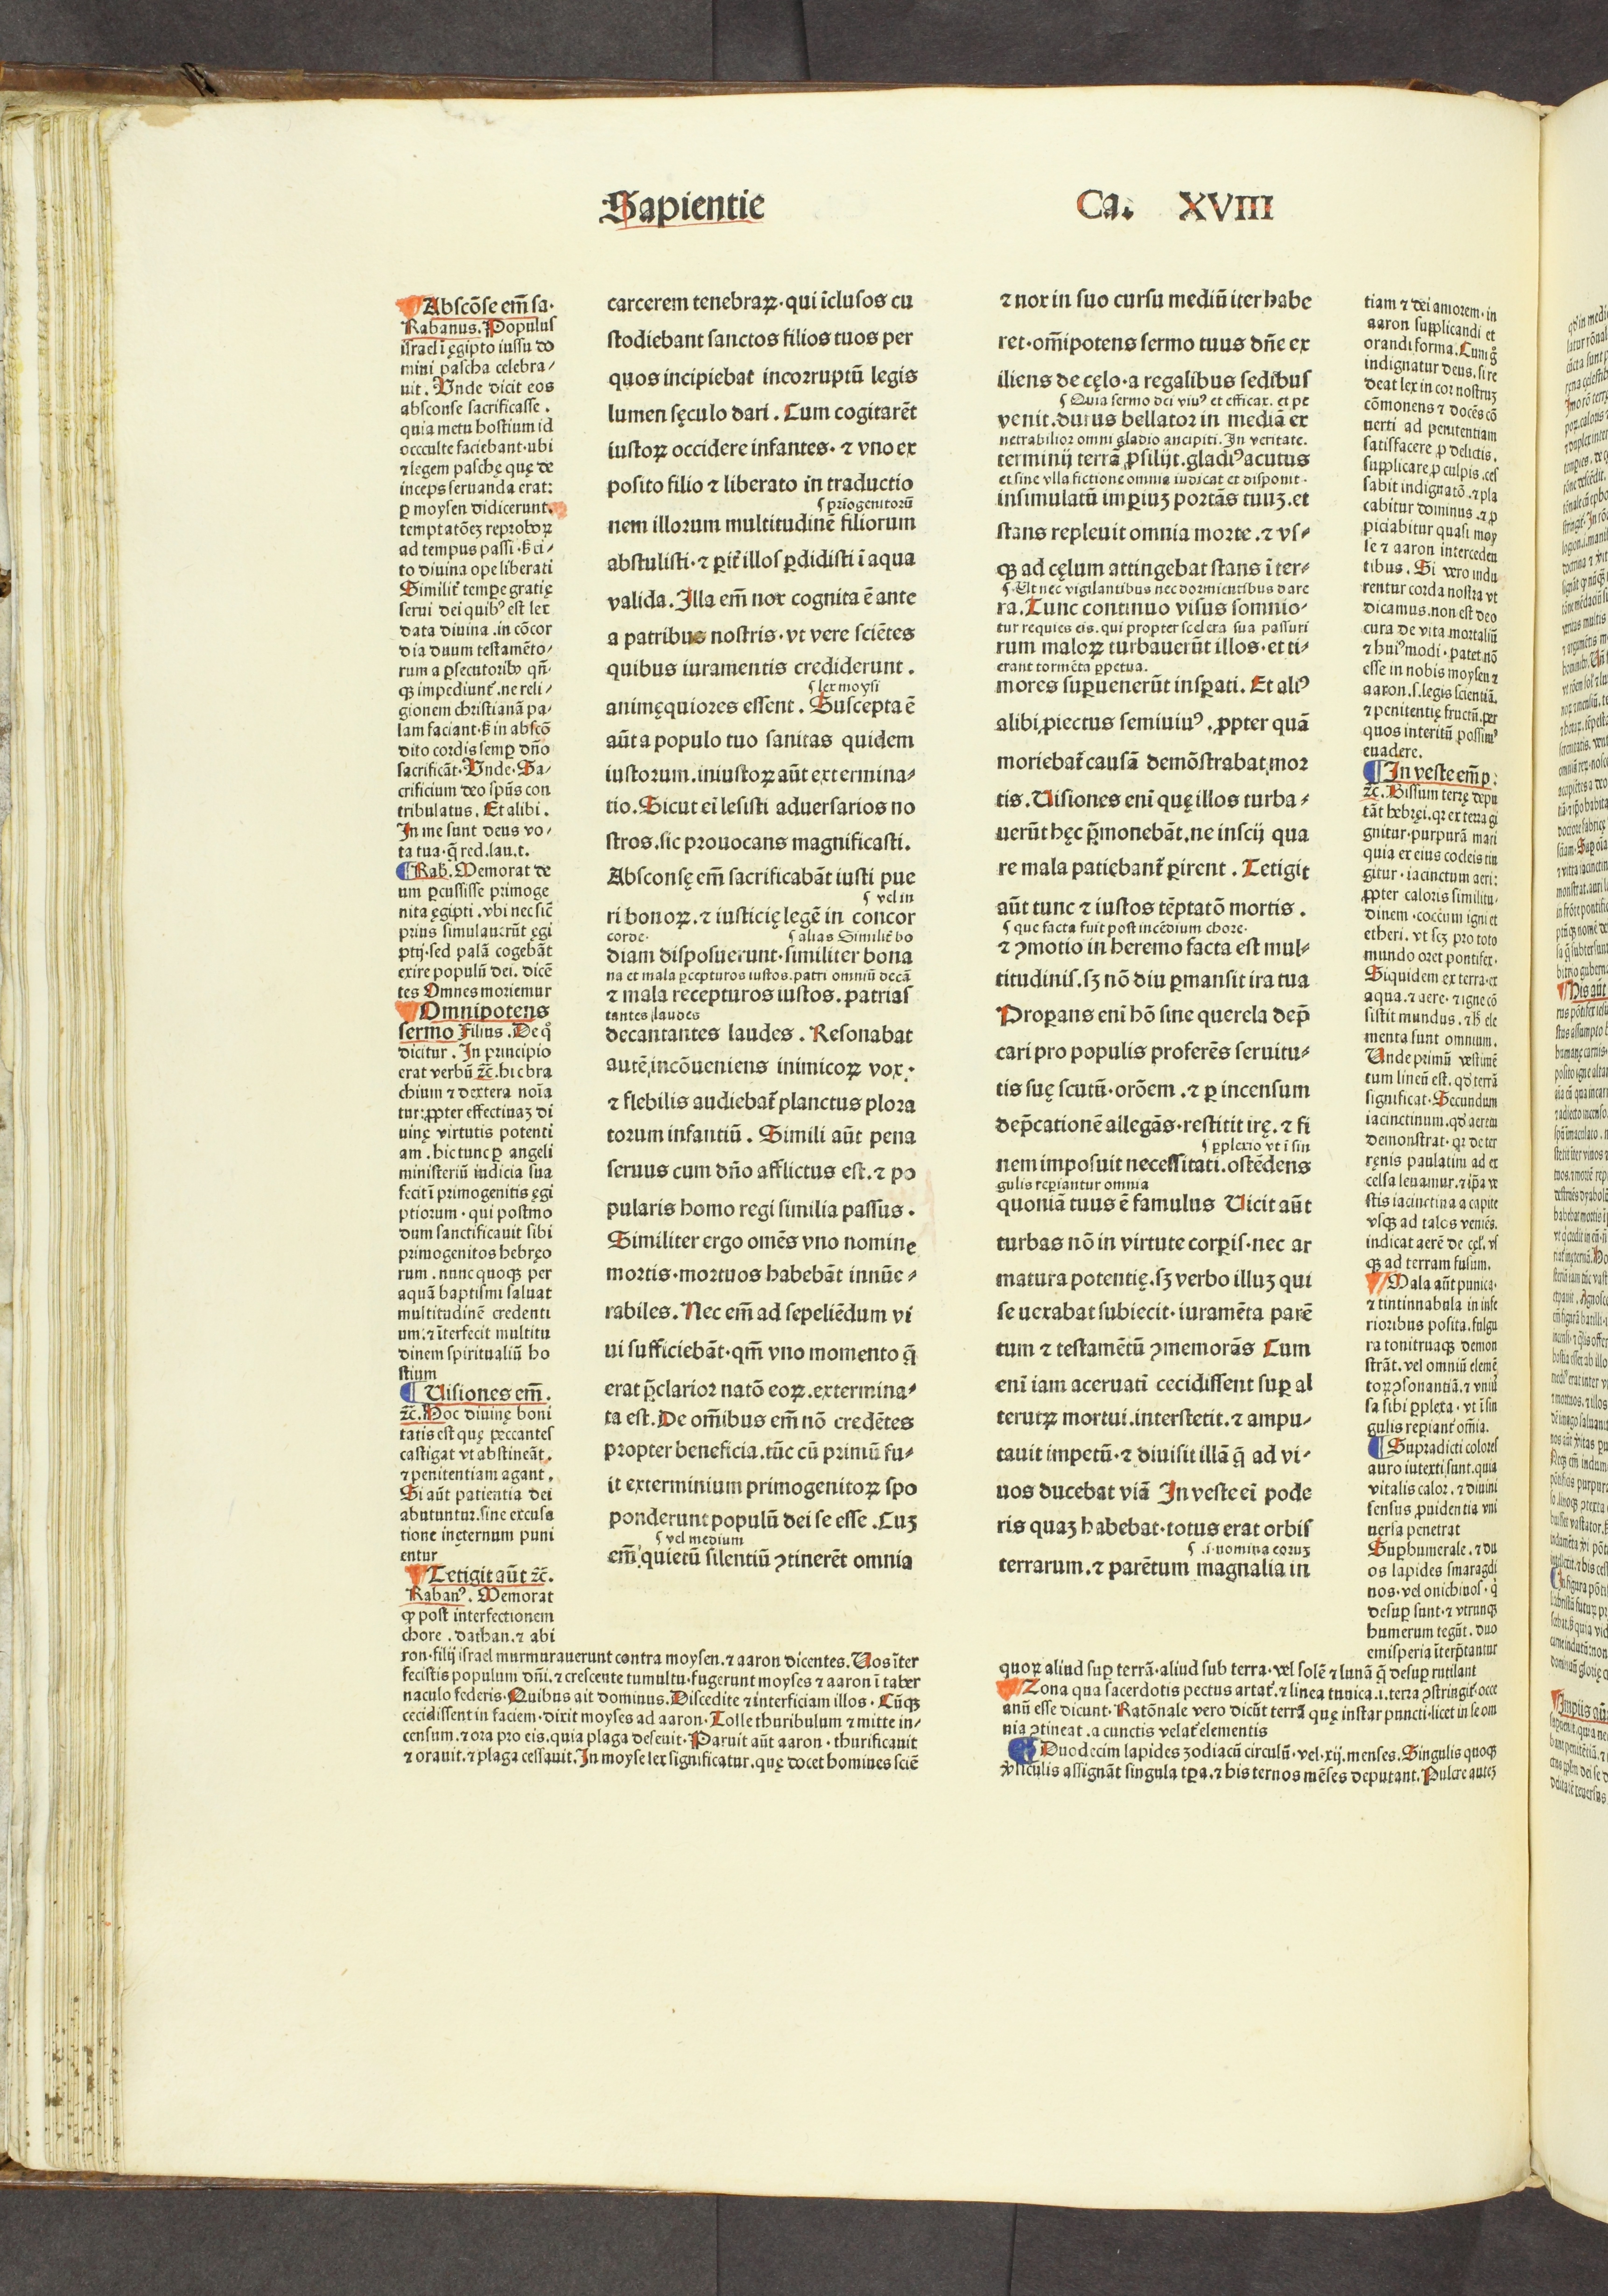 Sapientie
Ca. XVIII
Abscõse em̃ sa·
Rabanus. Populus
israel i ęgipto iussu do
mini pascha celebra/
uit. Vnde dicit eos
absconse sacrificasse.
quia metu hostium id
occculte faciebant·ubi
⁊ legem paschę quę de
inceps seruanda erat:
ꝑ moysen didicerunt.
temptatõeʒ reproboꝝ
ad tempus passi·ß ci/
to diuina ope liberati
Similit̃ tempe gratię
serui dei quibꝰ est lex
data diuina.in cõcor
dia duum testamẽto/
rum a ꝑsecutoribꝰ qñ·
qꝫ impediunt̃.ne reli/
gionem christianã pa/
lam faciant·ß in abscõ
dito cordis semꝑ dño
sacrificãt·Vnde·Sa/
crificium deo spũs con
tribulatus. Et alibi.
In me sunt deus vo/
ta tua·q̃ red.lau.t.
Rab. Memorat de
um ꝑcussisse primoge
nita ęgipti.vbi nec sic̃
prius simulauerũt ęgi
ptij·sed palã cogebãt
exire populũ dei. dicẽ
tes Omnes moriemur
Omnipotens
sermo Filius. De q̊
dicitur. In principio
erat verbũ ⁊c̃.hic bra
chium ⁊ dextera noĩa
tur:ꝓpter effectiuaʒ di
uinę virtutis potenti
am. hic tunc ꝑ angeli
ministeriũ iudicia sua
fecit ĩ primogenitis ęgi
ptiorum· qui postmo
dum sanctificauit sibi
primogenitos hebręo
rum.nunc quoqꝫ per
aquã baptismi saluat
multitudinẽ credenti
um:⁊ ĩterfecit multitu
dinem spiritualiũ ho
stium
Uisiones em̃.
⁊c̃. Hoc diuinę boni
tatis est quę peccantes
castigat vt abstineãt.
⁊ penitentiam agant.
Si aũt patientia dei
abutuntur.sine excusa
tione ineternum puni
entur
Tetigit aũt ⁊c̃.
Rabanꝰ. Memorat
ꝙ post interfectionem
chore. dathan.⁊ abi
ron·filij israel murmurauerunt contra moysen.⁊ aaron dicentes. Uos ĩter
fecistis populum dñi.⁊ crescente tumultu·fugerunt moyses ⁊ aaron ĩ taber
naculo federis·Quibus ait dominus. Discedite ⁊ interficiam illos. Cũqꝫ
cecidissent in faciem·dixit moyses ad aaron·Tolle thuribulum ⁊ mitte in/
censum.⁊ ora pro eis.quia plaga deseuit·Paruit aũt aaron·thurificauit
⁊ orauit.⁊ plaga cessauit. In moyse lex significatur.quę docet homines sciẽ
carcerem tenebraꝝ·qui ĩclusos cu
stodiebant sanctos filios tuos per
quos incipiebat incorruptũ legis
lumen sęculo dari. Cum cogitarẽt
iustoꝝ occidere infantes·⁊ vno ex
posito filio ⁊ liberato in traductio
ꝑrĩogenitorũ
nem illorum multitudinẽ filiorum
abstulisti·⁊ ꝑit̃ illos ꝑdidisti ĩ aqua
valida. Illa em̃ nox cognita ẽ ante
a patribus nostris·vt vere sciẽtes
quibus iuramentis crediderunt.
lex moysi
animęquiores essent. Suscepta ẽ
aũt a populo tuo sanitas quidem
iustorum.iniustoꝝ aũt extermina⸗
tio. Sicut eĩ lesisti aduersarios no
stros.sic prouocans magnificasti.
Absconsę em̃ sacrificabãt iusti pue
vel in
ri bonoꝝ.⁊ iusticię legẽ in concor
corde· alias Similit̃ bo
diam disposuerunt·similiter bona
na et mala ꝑcepturos iustos.patri omniũ decã
⁊ mala recepturos iustos.patrias
tantes laudes
decantantes laudes. Resonabat
autẽ incõueniens inimicoꝝ vox:
⁊ flebilis audiebat̃ planctus plora
torum infantiũ. Simili aũt pena
seruus cum dño afflictus est.⁊ po
pularis homo regi similia passus.
Similiter ergo omẽs vno nomine
mortis·mortuos habebãt innũe⸗
rabiles. Nec em̃ ad sepeliẽdum vi
ui sufficiebãt·qm̃ vno momento q̃
erat p̃clarior natõ eoꝝ.extermina⸗
ta est. De om̃ibus em̃ nõ credẽtes
propter beneficia.tũc cũ primũ fu⸗
it exterminium primogenitoꝝ spo
ponderunt populũ dei se esse. Cuʒ
vel medium
em̃ quietũ silentiũ ꝯtinerẽt omnia
⁊ nox in suo cursu mediũ iter habe
ret·om̃ipotens sermo tuus dñe ex
iliens de cęlo·a regalibus sedibus
Quia sermo dei viuꝰ et efficax. et pe
venit.durus bellator in mediã ex
netrabilior omni gladio ancipiti. In veritate.
terminij terrã ꝓsilijt.gladiꝰ acutus
et sine vlla fictione omnia iudicat et disponit·
insimulatũ imperiuʒ portãs tuuʒ.et
stans repleuit omnia morte.⁊ vs⸗
qꝫ ad cęlum attingebat stans ĩ ter⸗
Ut nec vigilantibus nec dormientibus dare
ra. Tunc continuo visus somnio⸗
tur requies eis. qui propter scelera sua passuri
rum maloꝝ turbauerũt illos·et ti⸗
erant tormẽta ꝑpetua.
mores supuenerũt insꝑati. Et aliꝰ
alibi ꝓiectus semiuiuꝰ.ꝓpter quã
moriebat̃ causã demõstrabat mor
tis. Uisiones eni quę illos turba⸗
uerũt hęc p̃monebãt.ne inscij qua
re mala patiebant̃ ꝑirent. Tetigit
aũt tunc ⁊ iustos tẽptatõ mortis.
que facta fuit post incẽdium chore·
⁊ ꝯmotio in heremo facta est mul⸗
titudinis.sʒ nõ diu ꝑmansit ira tua
Proꝑans eni hõ sine querela dep̃
cari pro populis proferẽs seruitu⸗
tis suę scutũ·orõem.⁊ ꝑ incensum
dep̃cationẽ allegãs·restitit irę.⁊ fi
ꝑplexio vt i sin
nem imposuit necessitati.ostẽdens
gulis reperiantur omnia
quoniã tuus ẽ famulus Uicit aũt
turbas nõ in virtute corꝑis·nec ar
matura potentię.sʒ verbo illuʒ qui
se uexabat subiecit·iuramẽta parẽ
tum ⁊ testamẽtũ ꝯmemorãs Cum
eni iam aceruati cecidissent suꝑ al
terutꝝ mortui.interstetit.⁊ ampu⸗
tauit impetũ·⁊ diuisit illã q̃ ad vi⸗
uos ducebat viã In veste ei pode
ris quaʒ habebat·totus erat orbis
.i.nomina eoruʒ
terrarum.⁊ parẽtum magnalia in
tiam ⁊ dei amorem.in
aaron supplicandi et
orandi forma. Cum g̊
indignatur deus.si re
deat lex in cor nostruʒ
cõmonens ⁊ docẽs cõ
uerti ad penitentiam
satisfacere ꝓ delictis.
supplicare ꝓ culpis.ces
sabit indignatõ.⁊ pla
cabitur dominus.⁊ ꝓ
piciabitur quasi moy
se ⁊ aaron interceden
tibus. Si vero indu
rentur corda nostra vt
dicamus.non est deo
cura de vita mortaliũ
⁊ huiꝰmodi·patet nõ
esse in nobis moysen ⁊
aaron.s.legis scientiã.
⁊ penitentię fructũ.per
quos interitũ possimꝰ
euadere.
In veste em̃ p:
⁊c̃. Bissum terrę depu
tãt hebręi.qꝛ ex terra gi
gnitur·purpurã mari
quia ex eius cocleis tin
gitur·iacinctum aeri:
ꝓpter caloris similitu/
dinem·coccum igni et
etheri. vt scʒ pro toto
mundo oret pontifex.
Siquidem ex terra·ex
aqua.⁊ aere·⁊ igne cõ
sistit mundus.⁊ h̃ ele
menta sunt omnium.
Unde primũ vestimẽ
tum lineũ est.qđ terrã
significat·Secundum
iacinctinum.qđ aerem
demonstrat·qꝛ de ter
renis paulatim ad ex
celsa leuamur.⁊ ip̃a ve
stis iacinctina a capite
vsqꝫ ad talos veniẽs.
indicat aerẽ de cęl.vs
qꝫ ad terram fusum.
Mala aũt punica·
⁊ tintinnabula in infe
rioribus posita.fulgu
ra tonitruaqꝫ demon
strãt.vel omniũ elemẽ
toꝝ ꝯsonantiã.⁊ vniũ
sa sibi ꝑplexa·vt ĩ sin
gulis reꝑiant̃ om̃ia.
Supradicti colores
auro intexti sunt.quia
vitalis calor.⁊ diuini
sensus ꝓuidentia vni
uersa penetrat
Suꝑhumerale.⁊ du
os lapides smaragdi
nos·vel onichinos·q̃
desuꝑ sunt·⁊ vtrunqꝫ
humerum tegũt.duo
emisperia ĩterp̃tantur
quoꝝ aliud suꝑ terrã·aliud sub terra·vel solẽ ⁊ lunã q̃ desuꝑ rutilant
Zona qua sacerdotis pectus artat̃.⁊ linea tunica.i.terra ꝯstringit̃·occe
anũ esse dicunt·Ratõnale vero dicũt terrã quę instar puncti·licet in se om
nia ꝯtineat.a cunctis velat̃ elementis
Duodecim lapides zodiacũ circulũ·vel·xij.menses. Singulis quoqꝫ
assignãt singula tꝑa.⁊ bis ternos mẽses deputant. Pulcre auteʒ